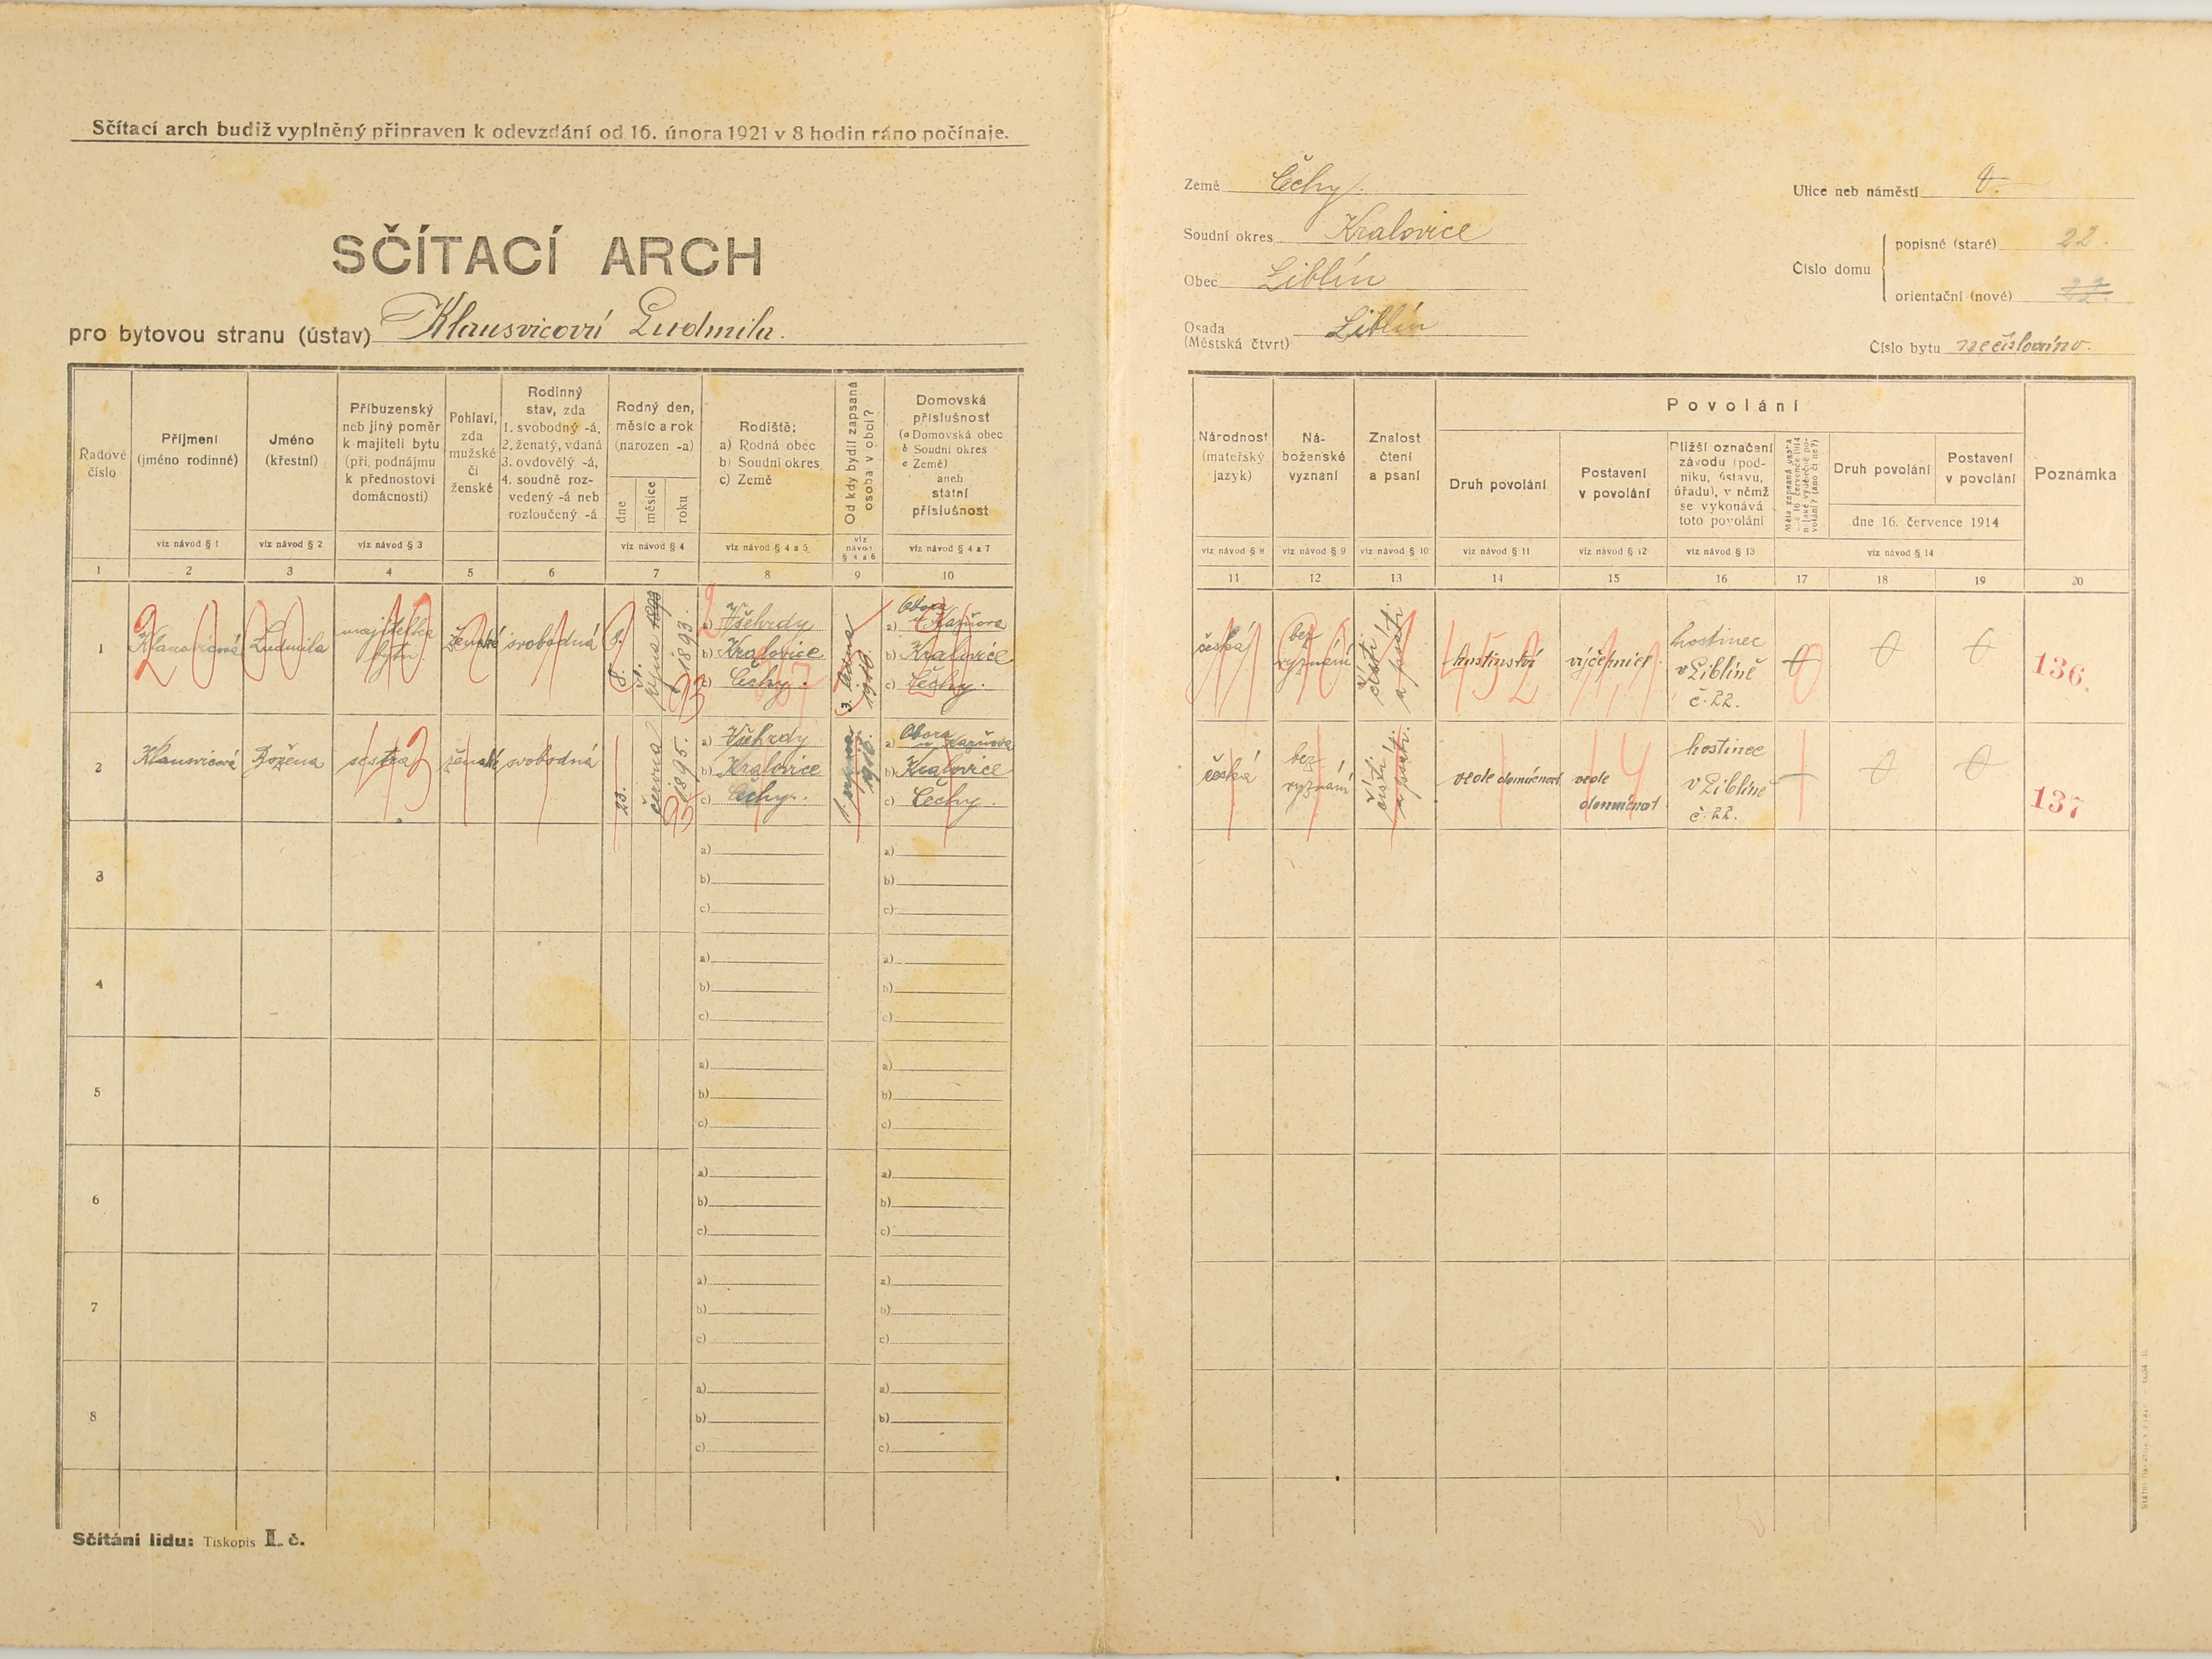 Sčítací arch budiž vyplněný připraven k odevzdání od 16. února 1921 v 8 hodin ráno počínaje.
SČÍTACÍ ARCH
pro bytovou stranu (ústav) Klausvicová Ludmila.
Země Čechy
Soudní okres Kralovice
Obec Liblín
Osada
(Městská čtvrť) Liblín
Ulice neb náměstí 0.
Číslo domu
popisné (staré) 22.
orientační (nové) 22.
Číslo bytu nečíslováno.
Řadové
číslo
Příjmení
(jméno rodinné)
viz návod § 1
Jméno
(křestní)
viz návod § 2
Příbuzenský
neb jiný poměr
k majiteli bytu
(při podnájmu
k přednostovi
domácnosti)
viz návod § 3
Pohlaví,
zda
mužské
či
ženské
Rodinný
stav, zda
1. svobodný -á,
2. ženatý, vdaná
3. ovdovělý -á,
4. soudně roz-
vedený -á neb
rozloučený -á
Rodný den,
měsíc a rok
(narozen -a)
dne
měsíce
roku
viz návod § 4
Rodiště:
a) Rodná obec
b) Soudní okres
c) Země
viz návod § 4 a 5
Od kdy bydlí zapsaná
osoba v obci?
viz
návod
§ 4 a 6
Domovská
příslušnost
(a Domovská obec
b Soudní okres
c Země)
aneb
státní
příslušnost
viz návod § 4 a 7
Národnost
(mateřský
jazyk)
viz návod § 8
Ná-
boženské
vyznání
viz návod § 9
Znalost
čtení
a psaní
viz návod § 10
Povolání
Druh povolání
viz návod § 11
Postavení
v povolání
viz návod § 12
Bližší označení
závodu (pod-
niku, ústavu,
úřadu), v němž
se vykonává
toto povolání
viz návod § 13
Druh povolání
Postavení
v povolání
dne 16. července 1914
viz návod § 14
Poznámka
1 2 3 4 5 6 7 8 9 10 11 12 13 14 15 16 17 18 19 20
1
Klausvicová
Ludmila
majitelka
bytu.
ženské
svobodná
8.
října
1893.
a) Všehrdy
b) Kralovice
c) Čechy.
3. ledna
1910.
Obora
a) u Kaznova
b) Kralovice
c) Čechy.
česká
bez
vyznání
čísti
a psáti.
hostinství
výčepnice
hostinec
v Liblíně
č. 22.
0
0
0
136.
2
Klausvicová
Božena
sestra
ženské
svobodná
23.
června
1895.
a) Všehrdy
b) Kralovice
c) Čechy.
1. srpna
Obora
a) u Kaznova
b) Kralovice
c) Čechy.
česká
bez
vyznání
čísti
a psáti.
vede domácnost
vede
domácnost
hostinec
v Liblíně
č. 22.
0
0
137
3
a)
b)
c)
a)
b)
c)
4
a)
b)
c)
a)
b)
c)
5
a)
b)
c)
a)
b)
c)
6
a)
b)
c)
a)
b)
c)
7
a)
b)
c)
a)
b)
c)
8
a)
b)
c)
a)
b)
c)
Sčítání lidu: Tiskopis II. č.